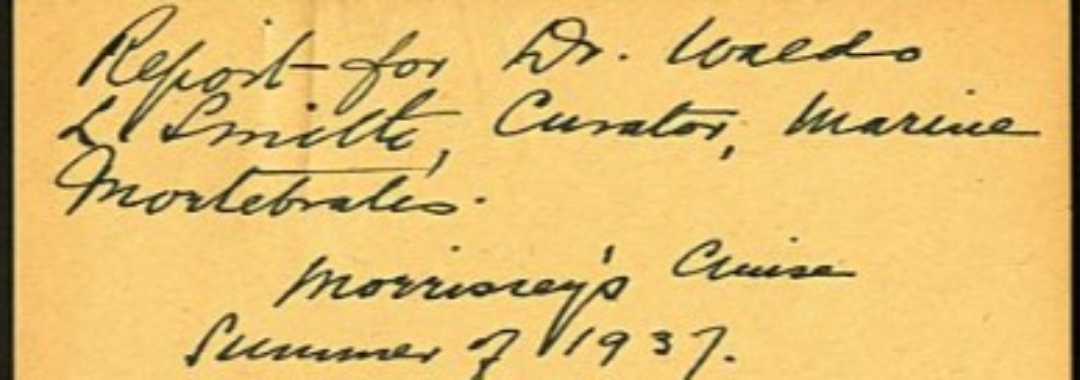 Report for Dr. Waldo
L Smith, Curator, Marine
Invertebrates.
Morrissey's Cruise
Summer of 1937.